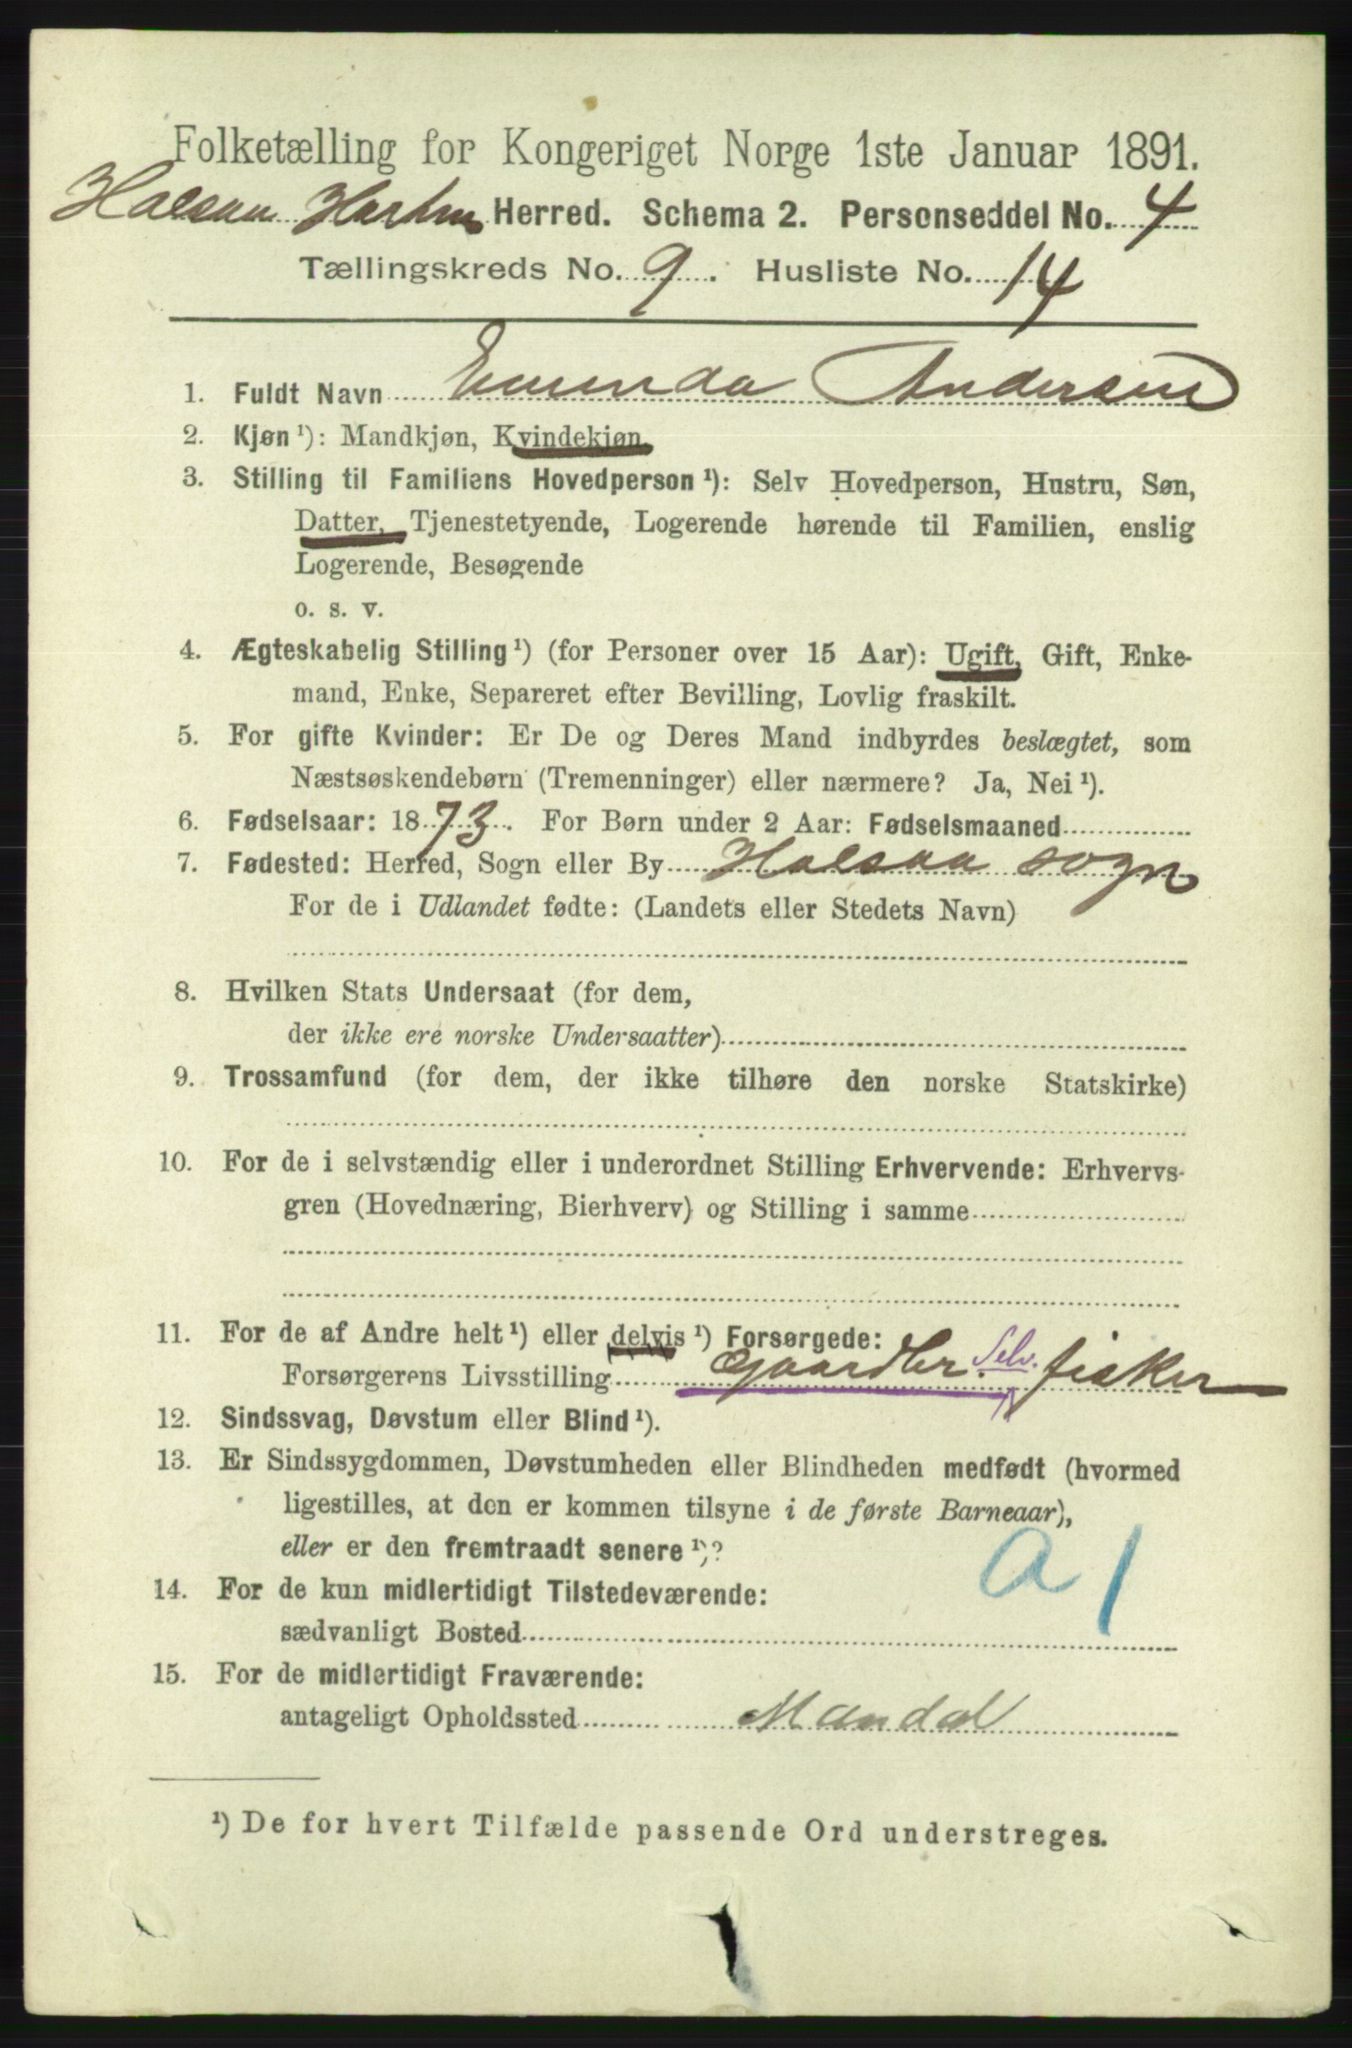 Folketælling for Kongeriget Norge 1ste Januar 1891.
Halsaa Hartm Herred. Schema 2. Personseddel No. 4
Tællingskreds No. 9. Husliste No. 14
1. Fuldt Navn Emenda Andersen
2. Kjøn ¹): Mandkjøn, Kvindekjøn
3. Stilling til Familiens Hovedperson ¹): Selv Hovedperson, Hustru, Søn,
Datter, Tjenestetyende, Logerende hørende til Familien, enslig
Logerende, Besøgende
o. s. v.
4. Ægteskabelig Stilling ¹) (for Personer over 15 Aar): Ugift, Gift, Enke-
mand, Enke, Separeret efter Bevilling, Lovlig fraskilt.
5. For gifte Kvinder: Er De og Deres Mand indbyrdes beslægtet, som
Næstsøskendebørn (Tremenninger) eller nærmere? Ja, Nei ¹).
6. Fødselsaar: 1873. For Børn under 2 Aar: Fødselsmaaned
7. Fødested: Herred, Sogn eller By Halsaa sogn
For de i Udlandet fødte: (Landets eller Stedets Navn)
8. Hvilken Stats Undersaat (for dem,
der ikke ere norske Undersaatter)
9. Trossamfund (for dem, der ikke tilhøre den norske Statskirke)
10. For de i selvstændig eller i underordnet Stilling Erhvervende: Erhvervs-
gren (Hovednæring, Bierhverv) og Stilling i samme
11. For de af Andre helt ¹) eller delvis ¹) Forsørgede:
Forsørgerens Livsstilling Gaardbr. Selv. fisker
12. Sindssvag, Døvstum eller Blind ¹).
13. Er Sindssygdommen, Døvstumheden eller Blindheden medfødt (hvormed
ligestilles, at den er kommen tilsyne i de første Barneaar),
eller er den fremtraadt senere ¹)?
a 1
14. For de kun midlertidigt Tilstedeværende:
sædvanligt Bosted
15. For de midlertidigt Fraværende:
antageligt Opholdssted Mandal
¹) De for hvert Tilfælde passende Ord understreges.